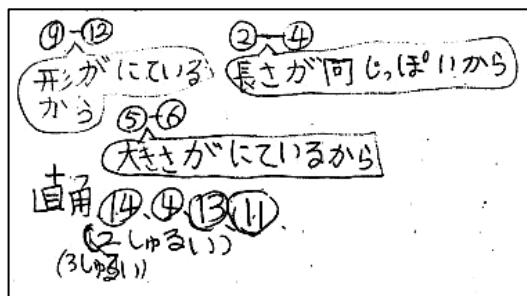 ⑨-⑫
形がにている
から
②-④
長さが同じっぽいから
⑤-⑥
大きさがにているから
直角⑭、④、⑬、⑪
(2しゅるい)
(3しゅるい)